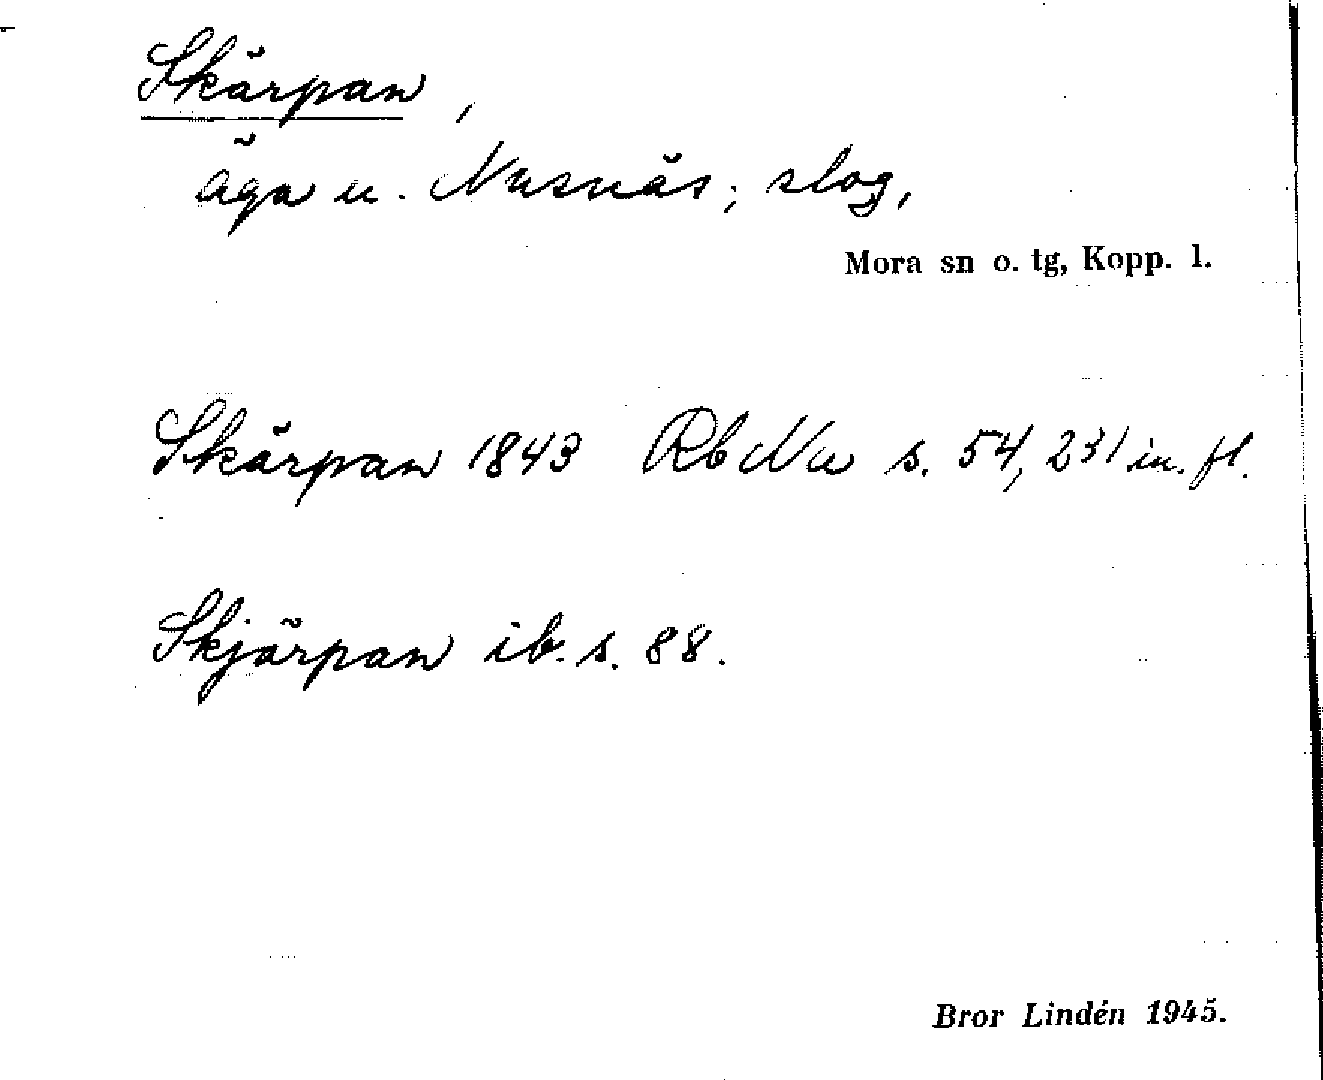 Skärpan,
äga u. Nusnäs; slog,
Mora sn o. tg, Kopp. l.
Skärpan 1843 Rb Nu s. 54, 231 m. fl.
Skjärpan ib. s. 88.
Bror Lindén 1945.